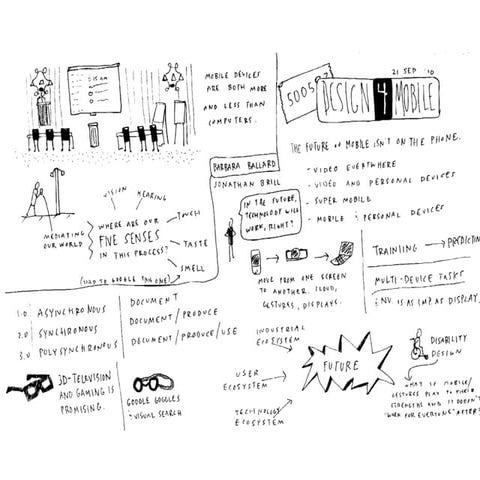 MOBILE DEVICES
ARE BOTH MORE
AND LESS THAN
COMPUTERS.
21 SEP '10
DESIGN 4 MOBILE
THE FUTURE OF MOBILE ISN'T ON THE PHONE.
- VIDEO EVERYWHERE
- VIDEO AND PERSONAL DEVICES
- SUPER MOBILE
- MOBILE & PERSONAL DEVICES
BARBARA BALLARD
JONATHAN BRILL
IN THE FUTURE,
TECHNOLOGY WILL
WORK, RIGHT?
VISION
HEARING
TOUCH
TASTE
SMELL
MEDIATING
OUR WORLD
WHERE ARE OUR
FIVE SENSES
IN THIS PROCESS?
MOVE FROM ONE SCREEN
TO ANOTHER. CLOUD,
GESTURES, DISPLAYS.
TRAINING → PREDICTIN
MULTI-DEVICE TASKS
ENV. IS AS IMP. AS DISPLAY,
1.0 ASYNCHRONOUS
2.0 SYNCHRONOUS
3.0 POLYSYNCHRONOUS
DOCUMENT
DOCUMENT/PRODUCE
DOCUMENT/PRODUCE/USE
3D-TELEVISION
AND GAMING IS
PROMISING.
GOOGLE GOGGLES
& VISUAL SEARCH
INDUSTRIAL
ECOSYSTEM
USER
ECOSYSTEM
TECHNOLOGY
ECOSYSTEM
FUTURE
DISABILITY
DESIGN
WHAT IF MOBILE/
GESTURES PLAY TO THEIR
STRENGTHS AND IT DOESN'T
"WORK FOR EVERYONE" AFTER